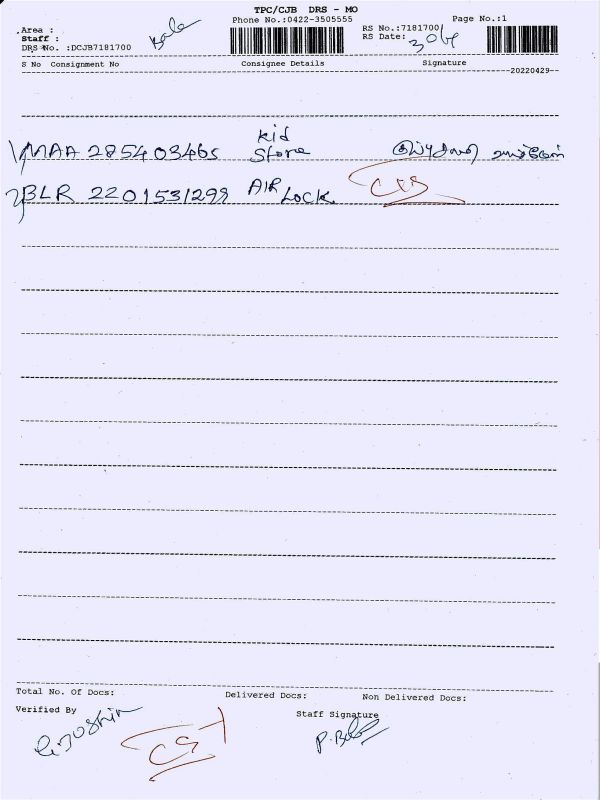 TPC/CJB DRS - MO
Phone No.:0422-3505555
Page No.:1
Area :
Staff : Bala
DRS No. :DCJB7181700
RS No.:7181700
RS Date: 30/4
S No Consignment No Consignee Details Signature
20220429
1) MAA 285403465 Kid Store
2) BLR 2201531298 AIR LOCK
Total No. Of Docs: Delivered Docs: Non Delivered Docs:
Verified By Staff Signature
P. Bala